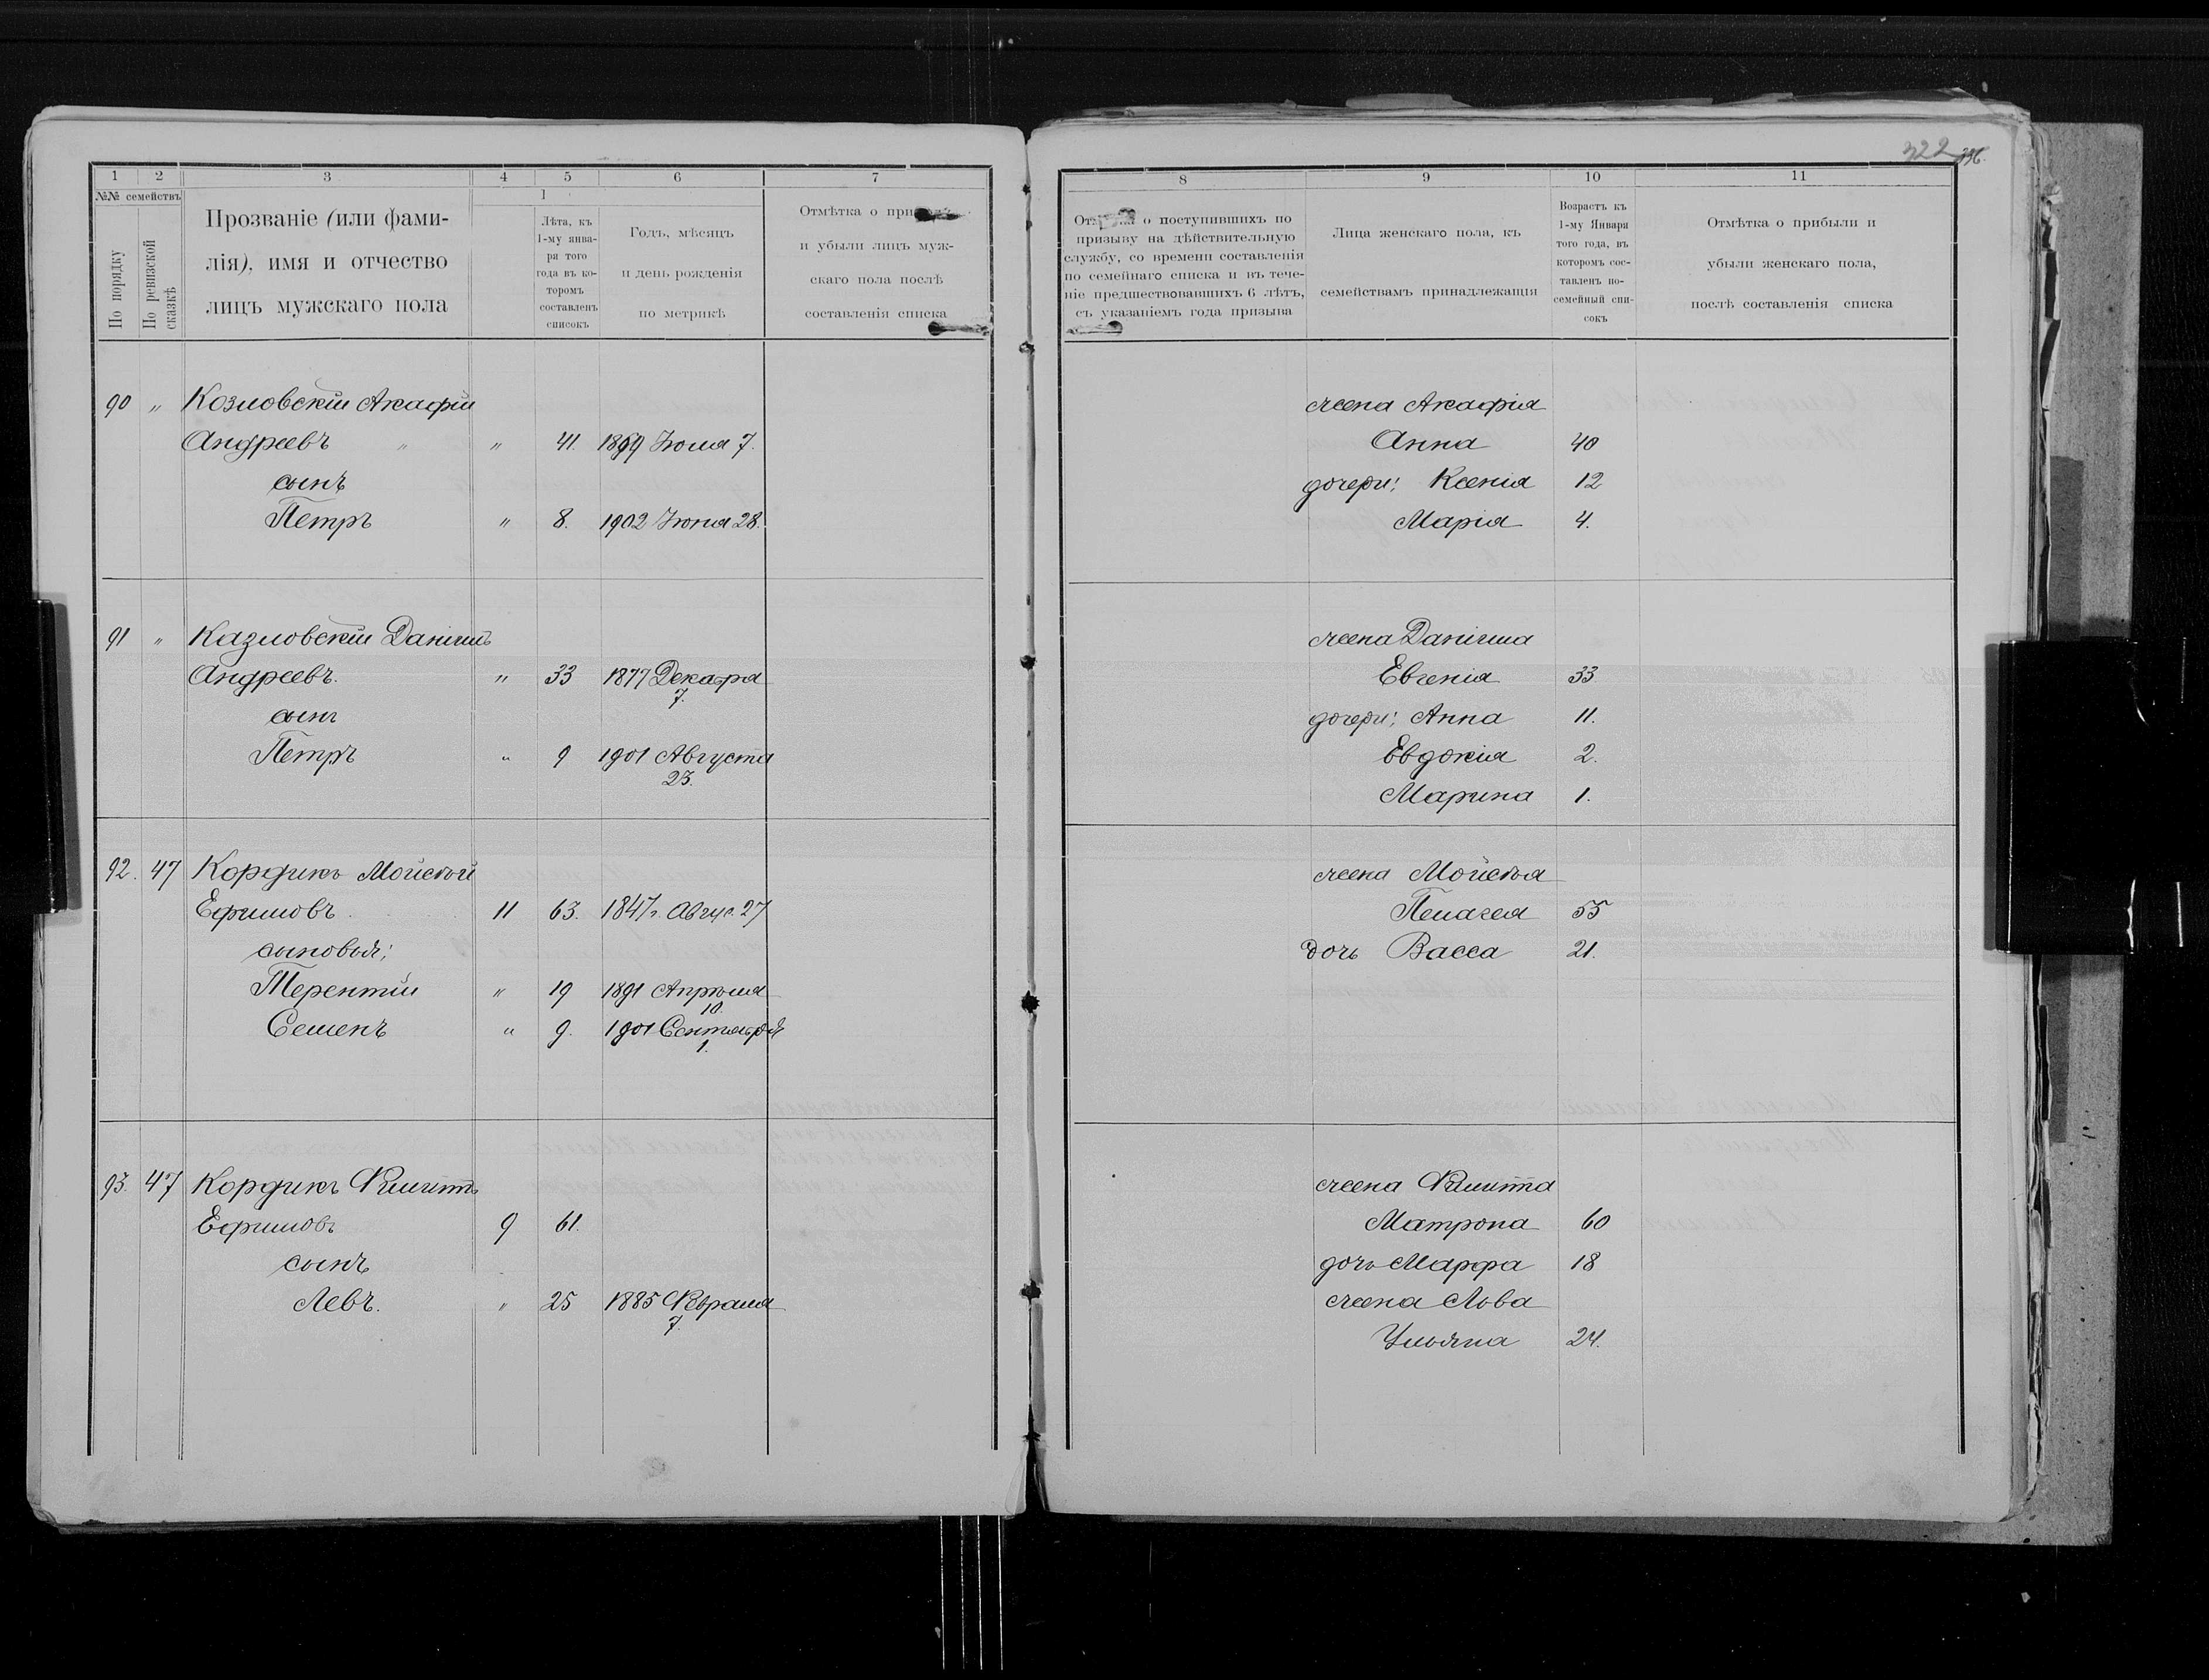 322 336.
1 2 3 4 5 6 7
№№ семействъ
По порядку
По ревизской сказкѣ
Прозваніе (или фами-
лія), имя и отчество
лицъ мужскаго пола
1
Лѣта, къ
1-му янва-
ря того
года въ ко-
торомъ
составленъ
списокъ
Годъ, мѣсяцъ
и день рожденія
по метрикѣ
Отмѣтка о
и убыли лицъ муж-
скаго пола послѣ
составленія списка
90 „ Козловскій Акафій
Андреевъ „ „ 41. 1869 Іюля 7.
сынъ
Петръ „ 8. 1902 Іюня 28.
91 „ Казловскій Даніилъ
Андреевъ. „ 33 1877 Декабря
7.
сынъ
Петръ „ 9 1901 Августа
23.
92. 47 Кордикъ Мойсѣй
Ефимовъ 11 63. 1847г. Авгус. 27
сыновья;
Терентій „ 19 1891 Апрѣля
10.
Семенъ „ 9. 1901 Сентября
1.
93. 47 Кордикъ Филиппъ
Ефимовъ 9 61.
сынъ
Левъ. „ 25 1885 Февраля
7.
8 9 10 11
о поступившихъ по
призыву на дѣйствительную
службу, со времени составленія
по семейнаго списка и въ тече-
ніе предшествовавшихъ 6 лѣтъ,
съ указаніемъ года призыва
Лица женскаго пола, къ
семействамъ принадлежащія
Возрастъ къ
1-му Января
того года, въ
которомъ сос-
тавленъ по-
семейный спи-
сокъ
Отмѣтка о прибыли и
убыли женскаго пола,
послѣ составленія списка
жена Акафія
Анна 40
дочери: Ксенія 12
Марія 4.
жена Даніила
Евгенія 33
дочери: Анна 11.
Евдокія 2.
Марина 1.
жена Мойсѣя
Пелагея 55
дочь Васса 21.
жена Филиппа
Матрона 60
дочь Марфа 18
жена Льва
Ульяна 24.